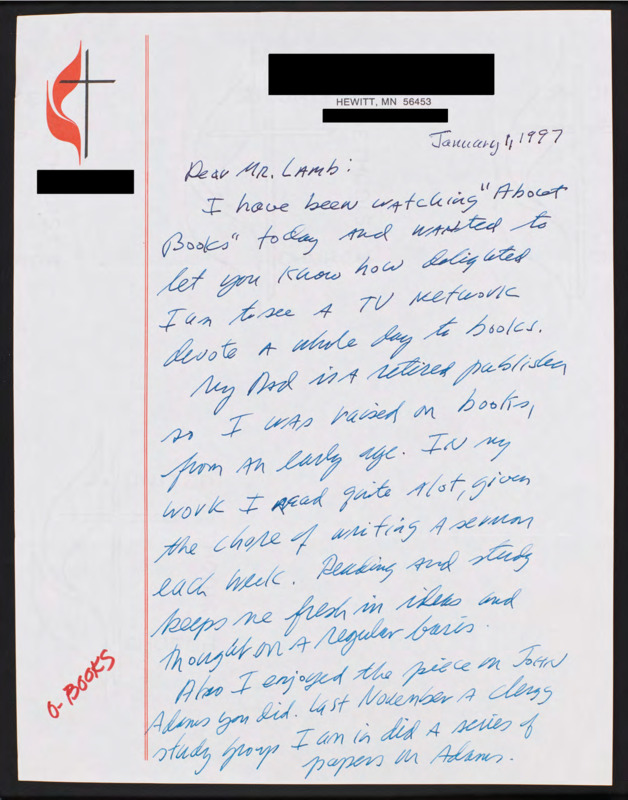 HEWITT, MN 56453
January 1, 1997
Dear Mr. Lamb:
I have been watching "About
Books" today and wanted to
let you know how delighted
I am to see a TV network
devote a whole day to books.
My Dad is a retired publisher
so I was raised on books,
from an early age. In my
work I read quite alot, given
the chore of writing a sermon
each week. Reading and study
keeps me fresh in ideas and
thought on a regular basis.
Also I enjoyed the piece on John
Adams you did. Last November a clergy
study group I am in did a series of
papers on Adams.
O-BOOKS